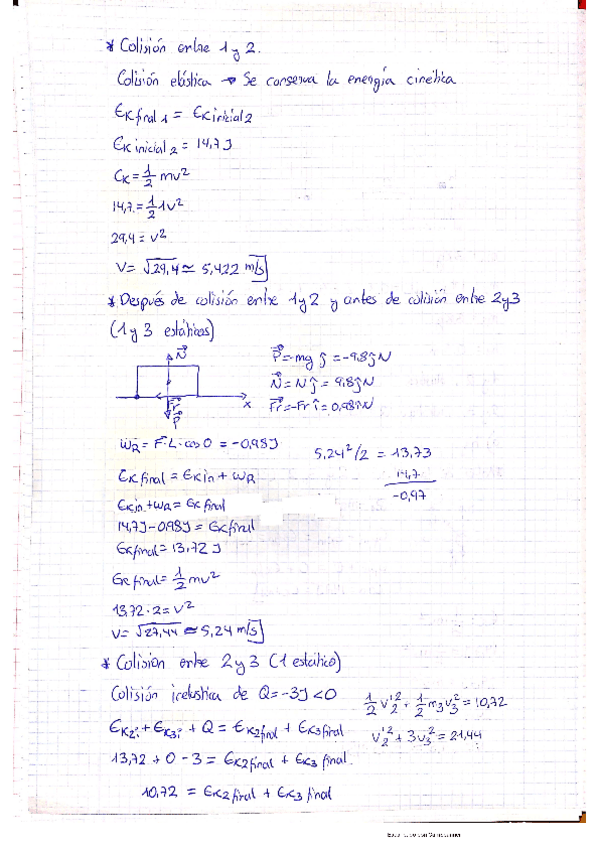 * Colisión entre 1 y 2.
Colisión elástica → Se conserva la energía cinética
Ek final 1 = Ek inicial 2
Ek inicial 2 = 14,7 J
Ek = 1/2 mv²
14,7 = 1/2 1v²
29,4 = v²
V = √29,4 ≃ 5,422 m/s
* Después de colisión entre 1 y 2 y antes de colisión entre 2 y 3
(1 y 3 estáticos)
N
Fr
P
x
P = -mg ĵ = -9.8 ĵ N
N = N ĵ = 9.8 ĵ N
Fr = -Fr î = 0,98 î N
WR = F·L·cos0 = -0,98 J
5,24²/2 = 13,73
14,7
-0,97
Ek final = Ek in + WR
Ek in + WR = Ek final
14,7J - 0,98J = Ek final
Ek final = 13,72 J
Ek final = 1/2 mv²
13,72 · 2 = v²
V = √27,44 ≃ 5,24 m/s
* Colisión entre 2 y 3 (1 estático)
Colisión inelástica de Q = -3J < 0
Ek2i + Ek3i + Q = Ek2 final + Ek3 final
13,72 + 0 - 3 = Ek2 final + Ek3 final
10,72 = Ek2 final + Ek3 final
1/2 v'2² + 1/2 m3v3² = 10,72
v'2² + 3v3² = 21,44